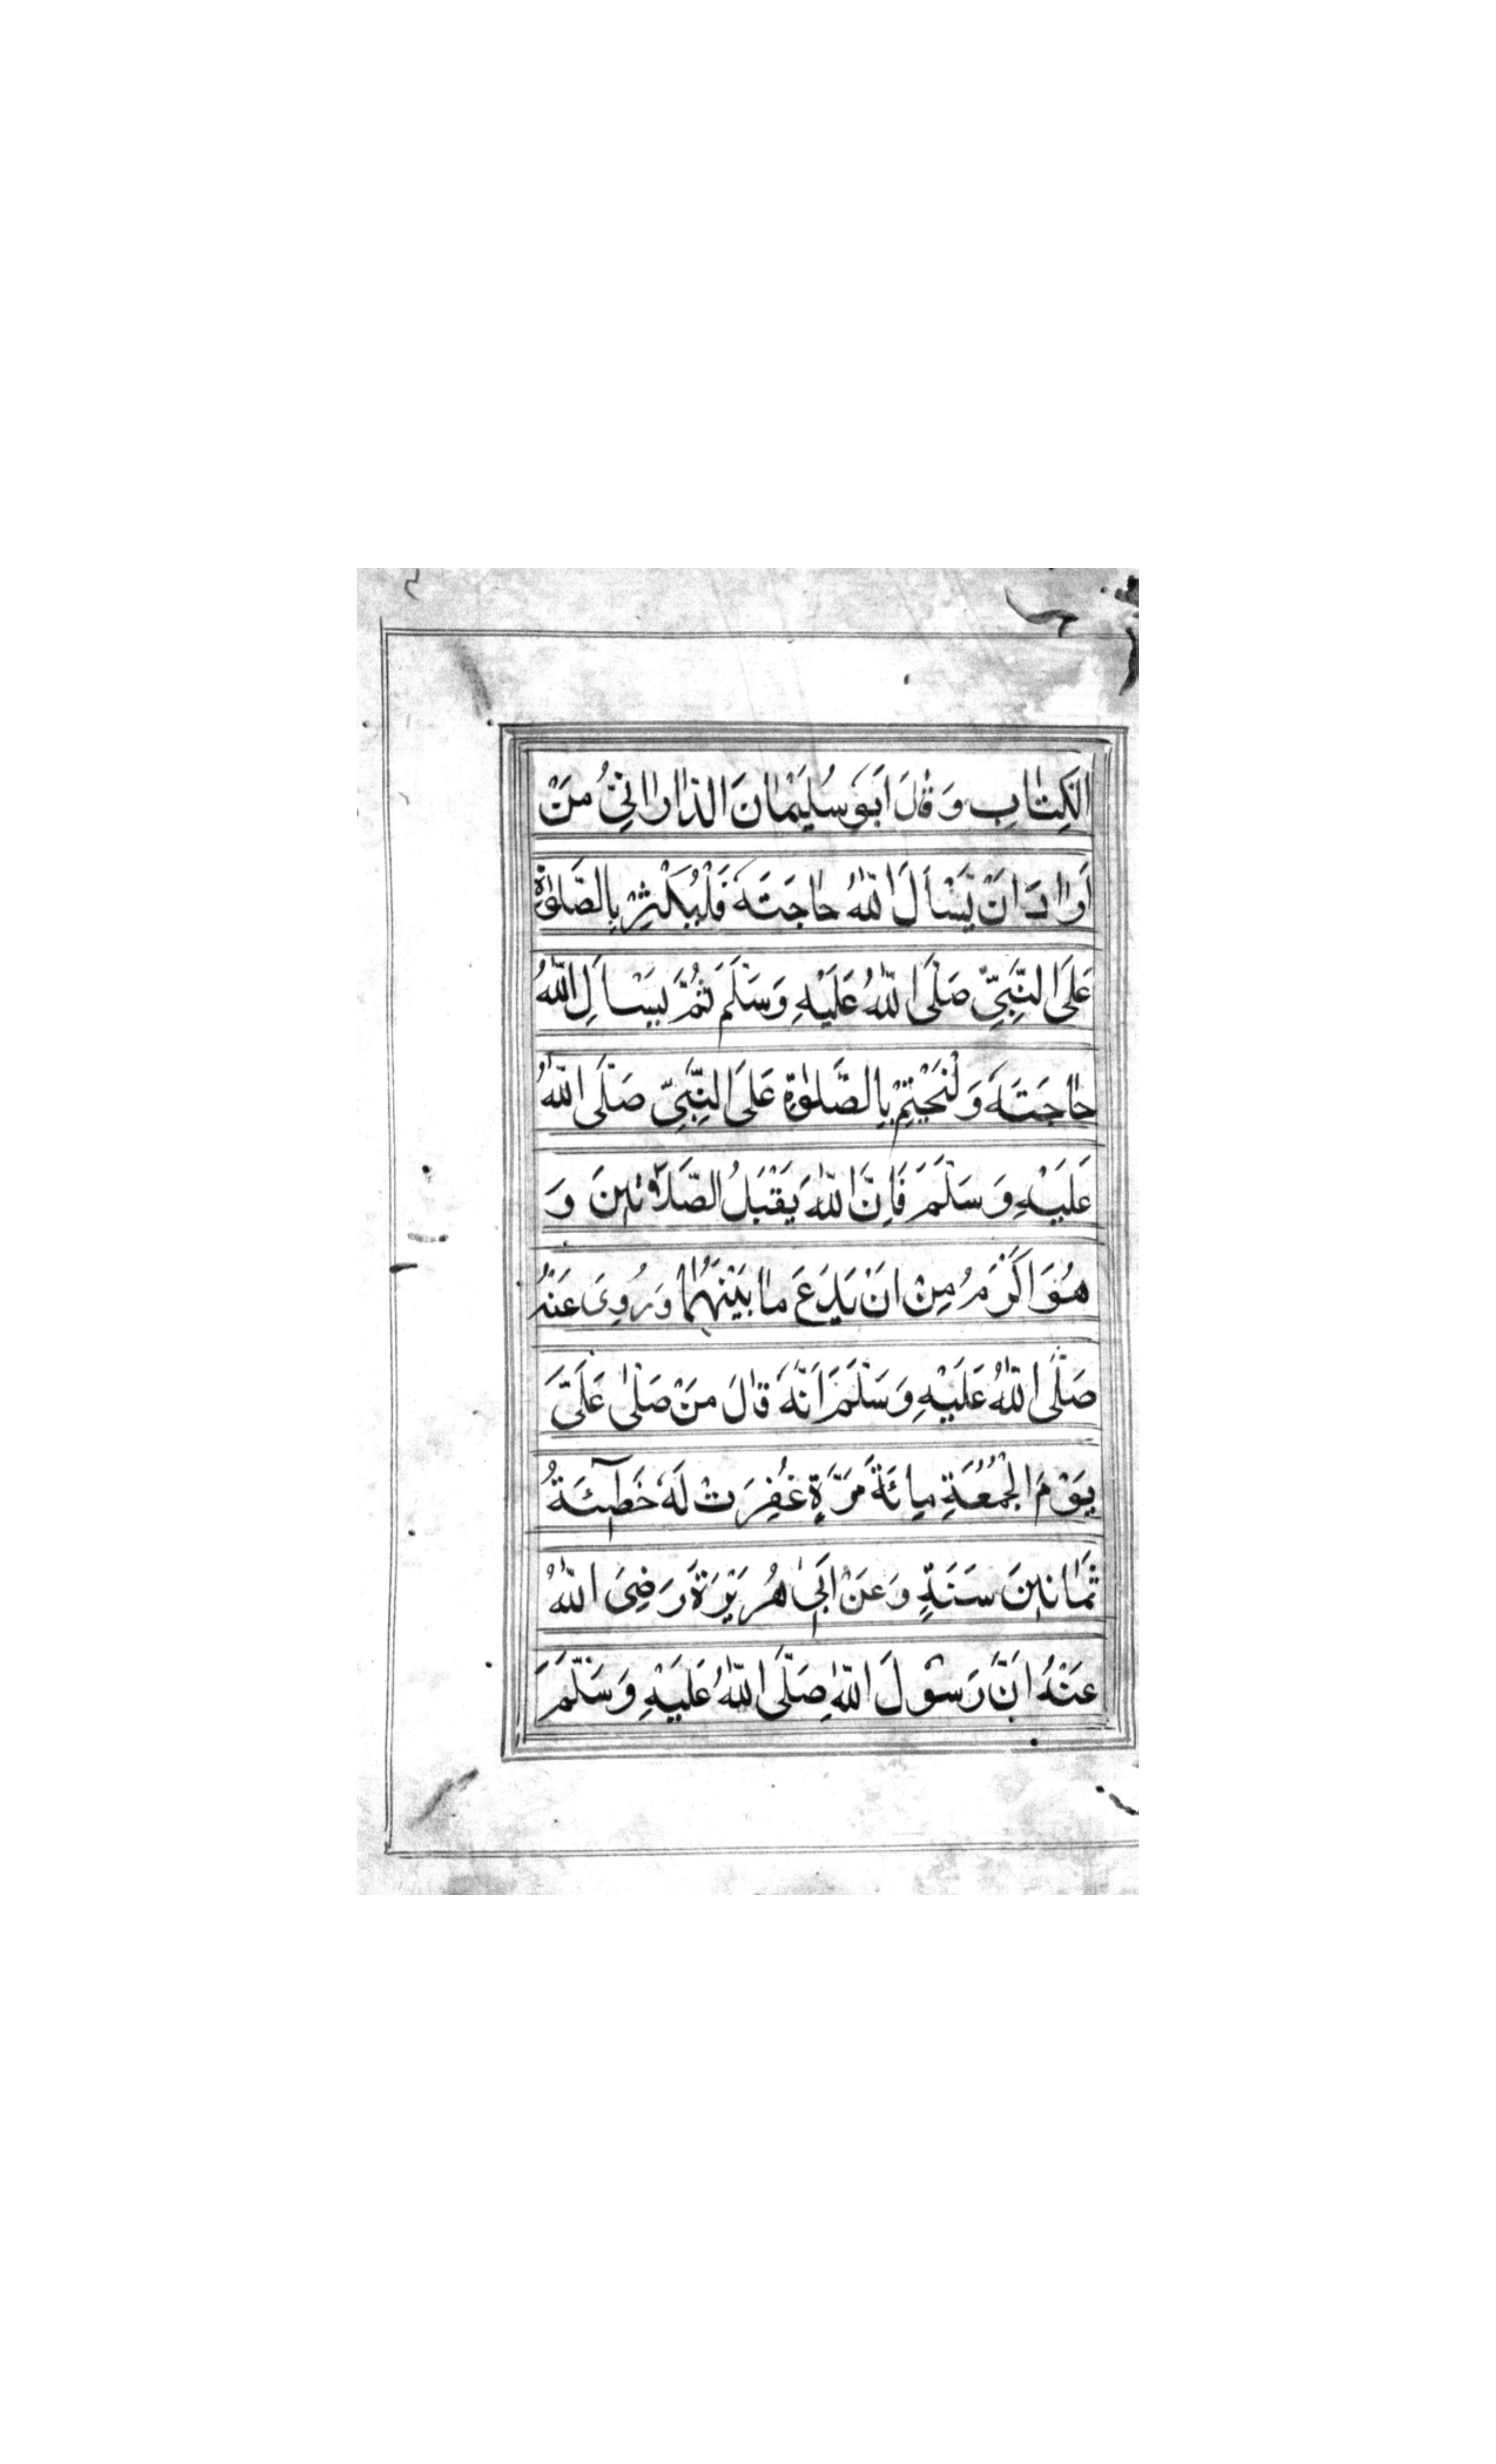 الْكِتَابِ وَقَالَ اَبُو سُلَيْمَانَ الدَّارَانِيُّ مَنْ
اَرَادَ اَنْ يَسْأَلَ اللّٰهَ حَاجَتَهُ فَلْيُكْثِرْ بِالصَّلٰوةِ
عَلَى النَّبِيِّ صَلَّى اللّٰهُ عَلَيْهِ وَسَلَّمَ ثُمَّ يَسْأَلِ اللّٰهَ
حَاجَتَهُ وَلْيَخْتِمْ بِالصَّلٰوةِ عَلَى النَّبِيِّ صَلَّى اللّٰهُ
عَلَيْهِ وَسَلَّمَ فَاِنَّ اللّٰهَ يَقْبَلُ الصَّلَاتَيْنِ وَ
هُوَ اَكْرَمُ مِنْ اَنْ يَدَعَ مَا بَيْنَهُمَا وَرُوِيَ عَنْهُ
صَلَّى اللّٰهُ عَلَيْهِ وَسَلَّمَ اَنَّهُ قَالَ مَنْ صَلّٰى عَلَيَّ
يَوْمَ الْجُمُعَةِ مِائَةَ مَرَّةٍ غُفِرَتْ لَهُ خَطِٓيئَةُ
ثَمَانِينَ سَنَةٍ وَعَنْ اَبِي هُرَيْرَةَ رَضِيَ اللّٰهُ
عَنْهُ اَنَّ رَسُولَ اللّٰهِ صَلَّى اللّٰهُ عَلَيْهِ وَسَلَّمَ